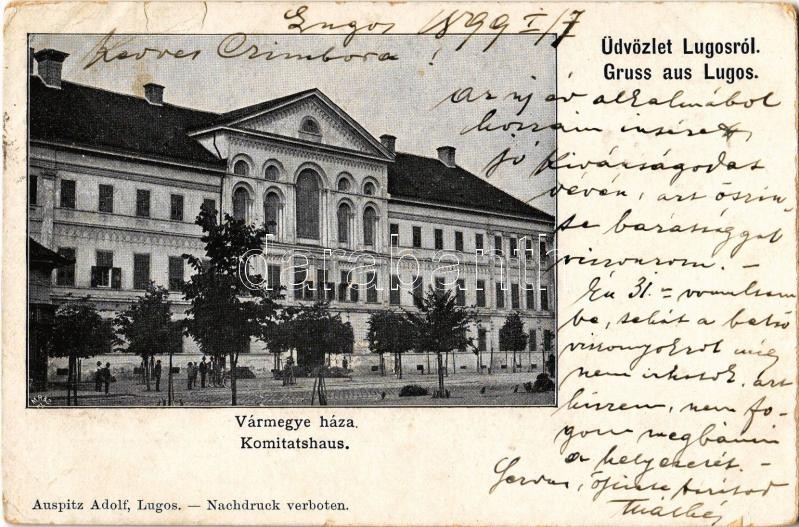 Lugos 1899 I/7
Kedves Czimbora!
Üdvözlet Lugosról.
Gruss aus Lugos.
az uj év alkalmából
hozzám intézett
jó kivánságodat
vévén, azt őszin-
te barátsággal
viszonzom. –
Én 31.= vonultam
be, tehát a belső
viszonyokról még
nem irhatok, azt
hiszem, nem fo-
gom megbánni
a helycserét. –
Servus, őszinte barátod
darabanth
Vármegye háza.
Komitatshaus.
Auspitz Adolf, Lugos. — Nachdruck verboten.